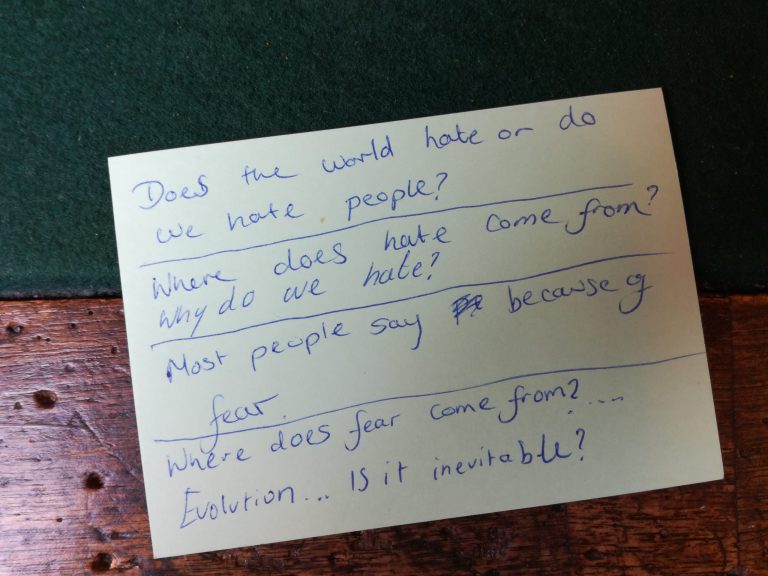 Does the world hate or do
we hate people?
Where does hate come from?
Why do we hate?
Most people say because of
fear.
Where does fear come from?....
Evolution... Is it inevitable?